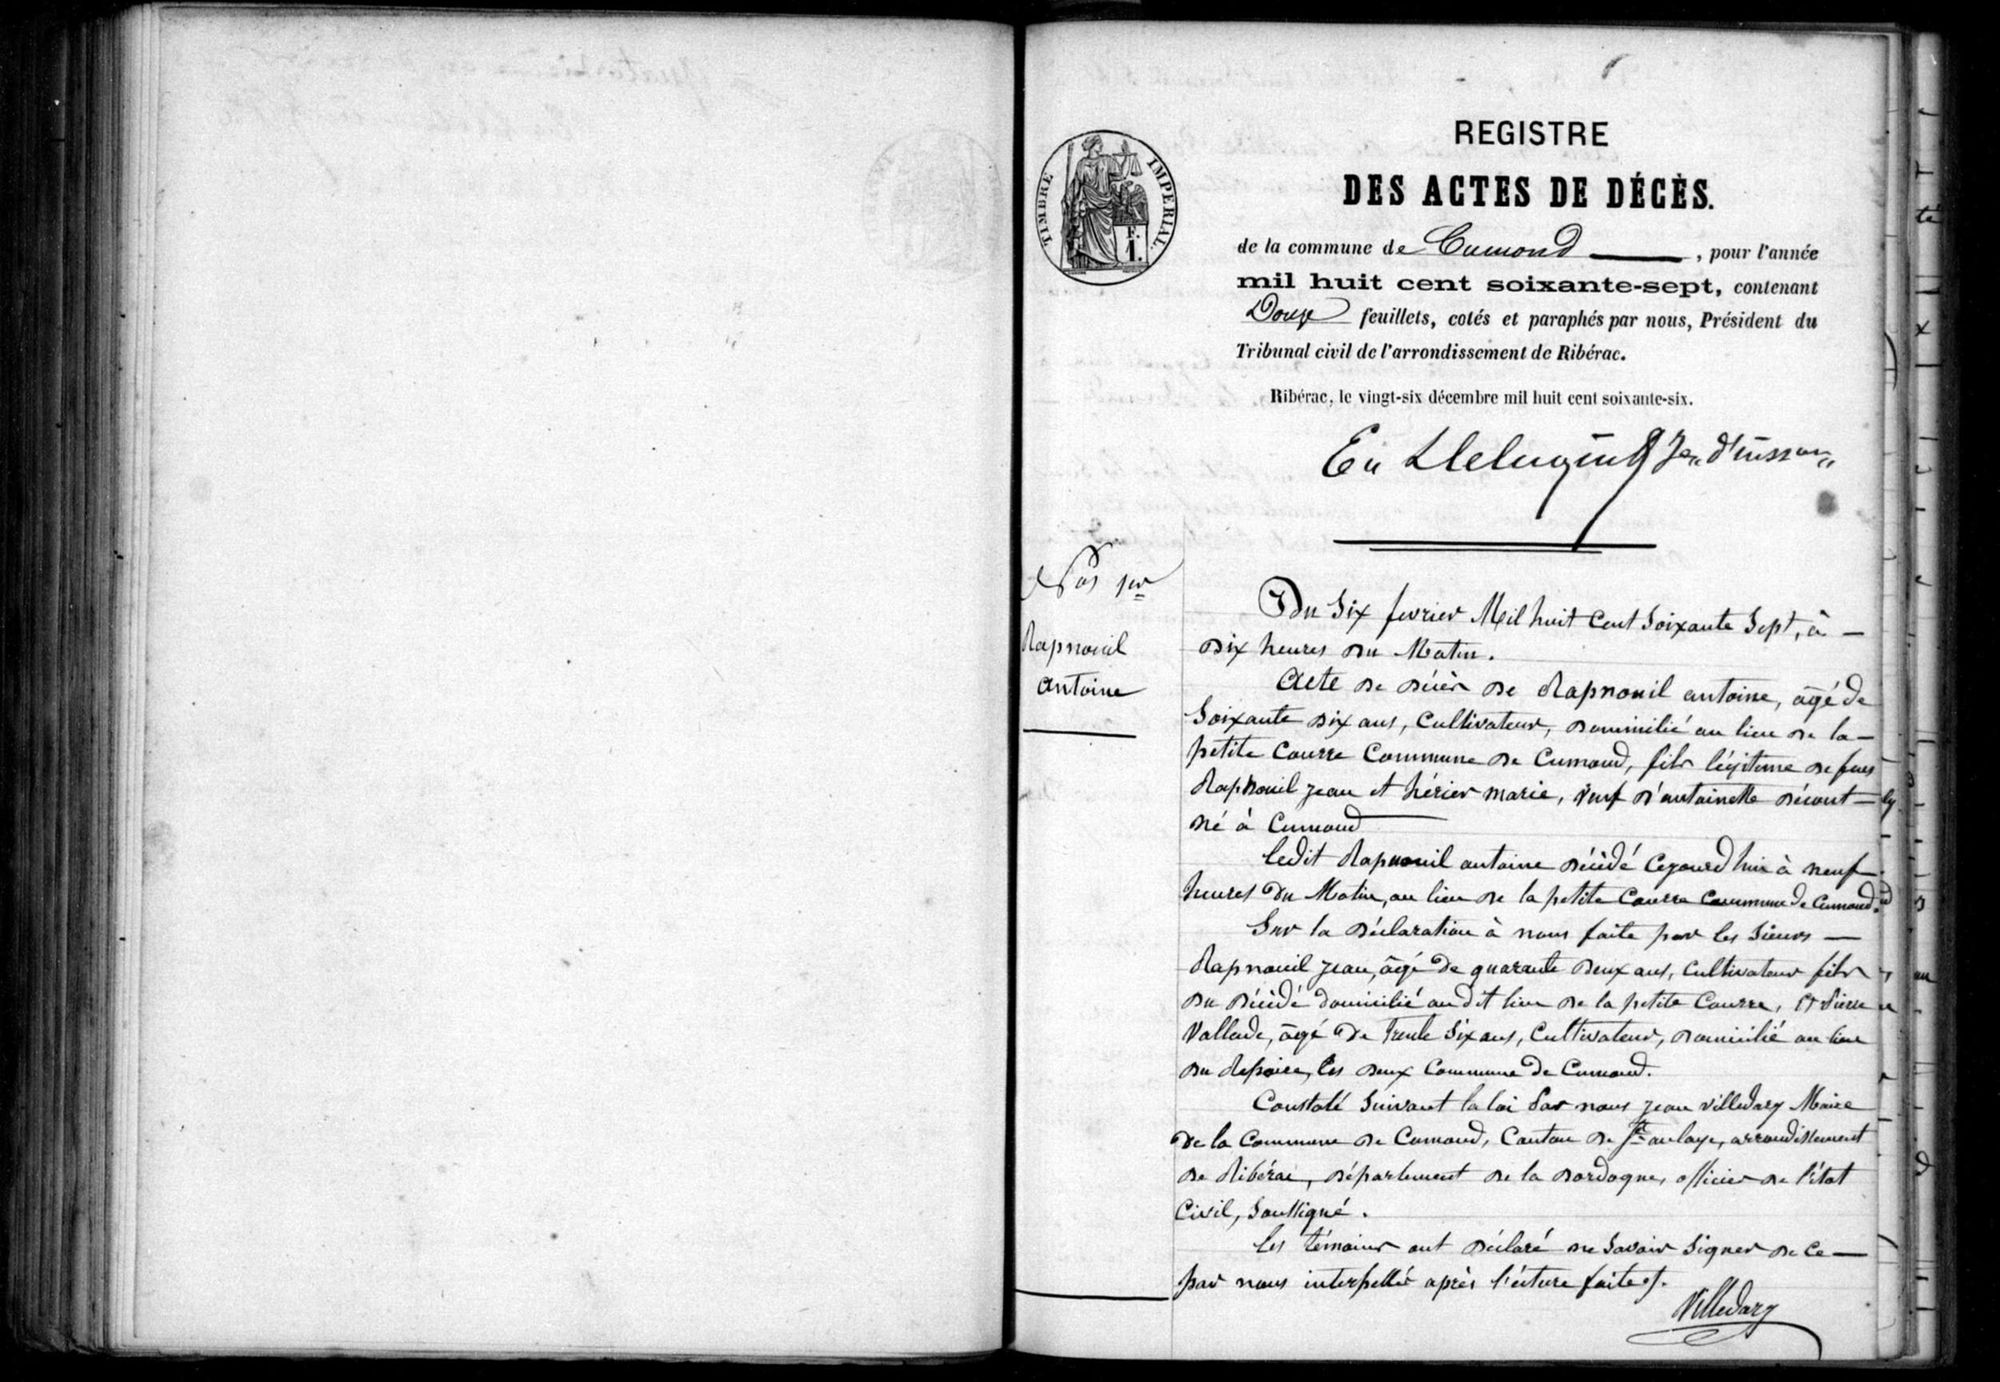 TIMBRE IMPERIAL
F.
1.
REGISTRE
DES ACTES DE DÉCÈS.
de la commune de Cumond , pour l'année
mil huit cent soixante-sept, contenant
Douze feuillets, cotés et paraphés par nous, Président du
Tribunal civil de l'arrondissement de Ribérac.
Ribérac, le vingt-six décembre mil huit cent soixante-six.
Nos 1er
Rapnouil
antoine
Du Six fevrier Mil huit Cent Soixante Sept, à —
Dix heures Du Matin.
Acte De Décès De Rapnouil antoine, âgé de
Soixante Dix ans, Cultivateur, Domicilié au lieu De la —
petite Courre Commune De Cumond, fils légitime De feus
Rapnouil jean et hérier marie, veuf D'antoinette
Né à Cumond
Ledit Rapnouil antoine Décédé Cejourd'hui à neuf
heures Du Matin, au lieu De la petite Courre Commune de Cumond.
Sur la Déclaration à nous faite par les Sieurs —
Rapnouil jean, âgé De quarante Deux ans, Cultivateur fils
Du Décédé domicilié au dit lieu De la petite Courre, et Pierre
Vallade, âgé De Trente Six ans, Cultivateur, Domicilié au lieu
Du Repaire, les Deux Commune De Cumond.
Constaté Suivant la loi Par nous jean Villedary Maire
De la Commune De Cumond, Canton De St aulaye, arrondissement
De Ribérac, Département De la Dordogne, officier De l'état
Civil, Soussigné.
Les témoins ont Déclaré ne Savoir Signer De Ce —
par nous interpellés après l'écture faite.
Villedary